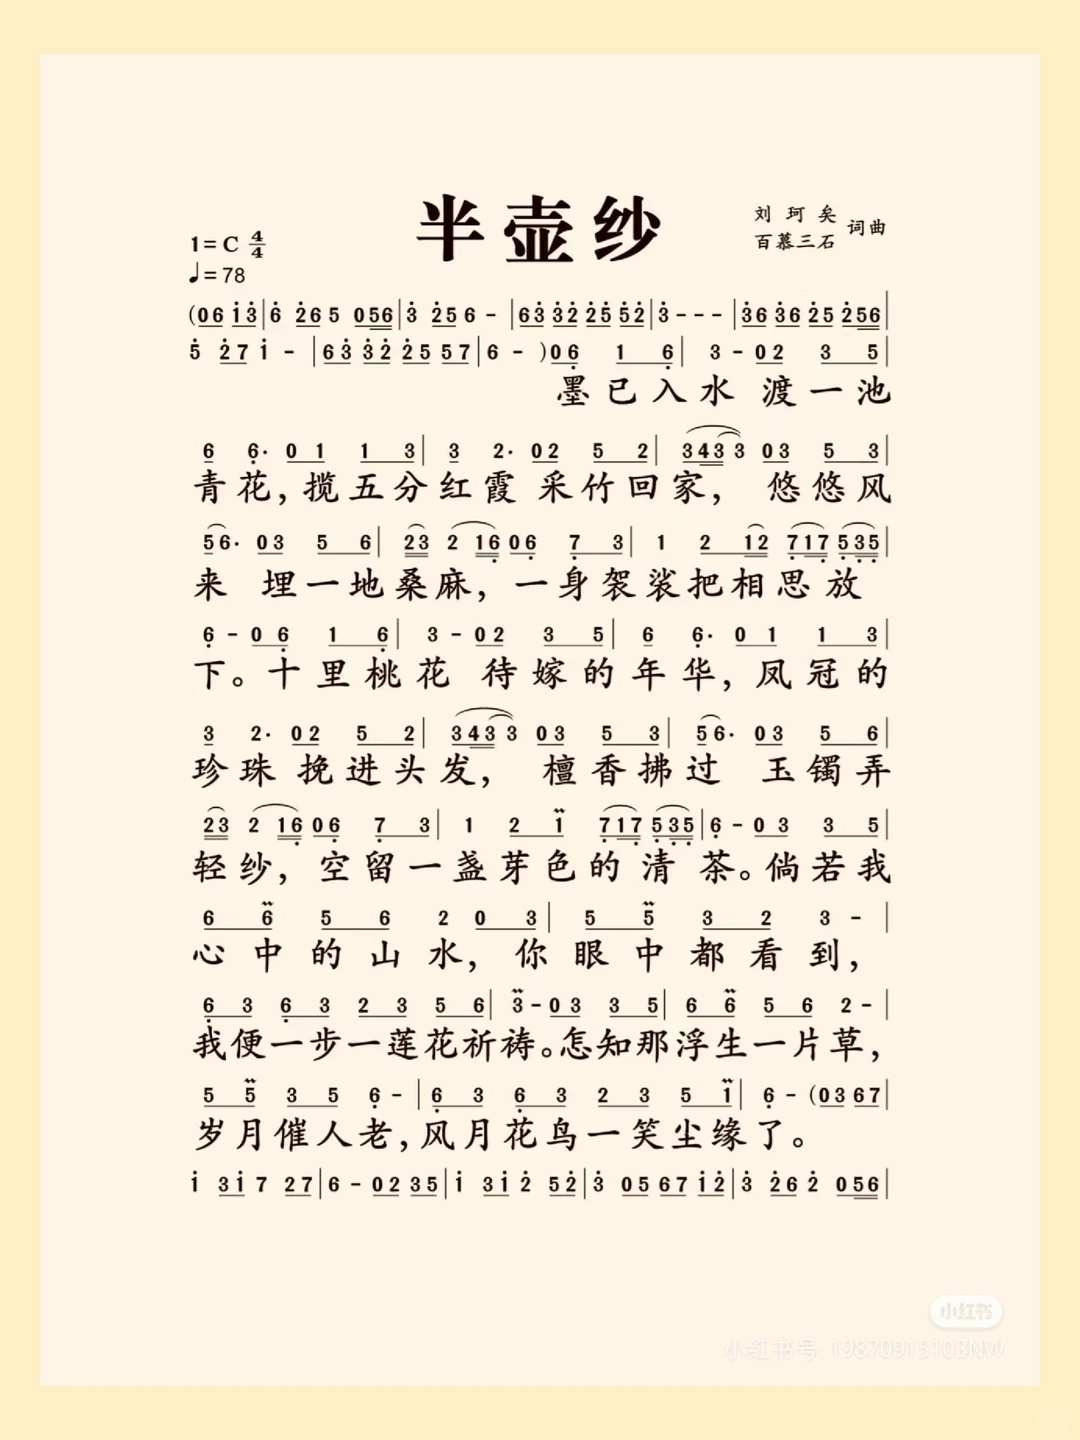 半壶纱
刘珂矣
百慕三石 词曲
1=C 4/4
♩=78
(06 1̇3̇|6̇ 2̇65 056|3̇ 2̇56 -|63̇ 3̇2̇ 2̇5 5̇2̇|3̇ - - -|3̇6 3̇6 2̇5 2̇56|
5̇ 2̇7 1̇ -|63̇ 3̇2̇ 2̇5 57|6 - )06̣ 1 6̣|3 - 02 3 5|
墨已入水 渡一池
6 6· 01 1 3|3 2· 02 5 2|343 3 03 5 3|
青花,揽五分红霞 采竹回家, 悠悠风
56· 03 5 6|23 2 16̣ 06̣ 7̣ 3|1 2 12 7̣17̣ 5̣3̣5̣|
来 埋一地桑麻,一身袈裟把相思放
6̣ - 06̣ 1 6̣|3 - 02 3 5|6 6· 01 1 3|
下。十里桃花 待嫁的年华,凤冠的
3 2· 02 5 2|343 3 03 5 3|56· 03 5 6|
珍珠 挽进头发, 檀香拂过 玉镯弄
23 2 16̣ 06̣ 7̣ 3|1 2 1 7̣17̣ 5̣3̣5̣|6̣ - 03 3 5|
轻纱,空留一盏芽色的清茶。倘若我
6 6 5 6 2 0 3|5 5 3 2 3 -|
心中的山水,你眼中都看到,
6̣ 3 6̣ 3 2 3 5 6|3 - 03 3 5|6 6 5 6 2 -|
我便一步一莲花祈祷。怎知那浮生一片草,
5 5 3 5 6̣ -|6̣ 3 6̣ 3 2 3 5 1|6̣ - (03 67|
岁月催人老,风月花鸟一笑尘缘了。
1̇ 31̇ 7 27|6 - 02 35|1̇ 31̇ 2̇ 52̇|3̇ 05 67 1̇2̇|3̇ 2̇6 2̇ 056|
小红书
小红书号 19870915103NW